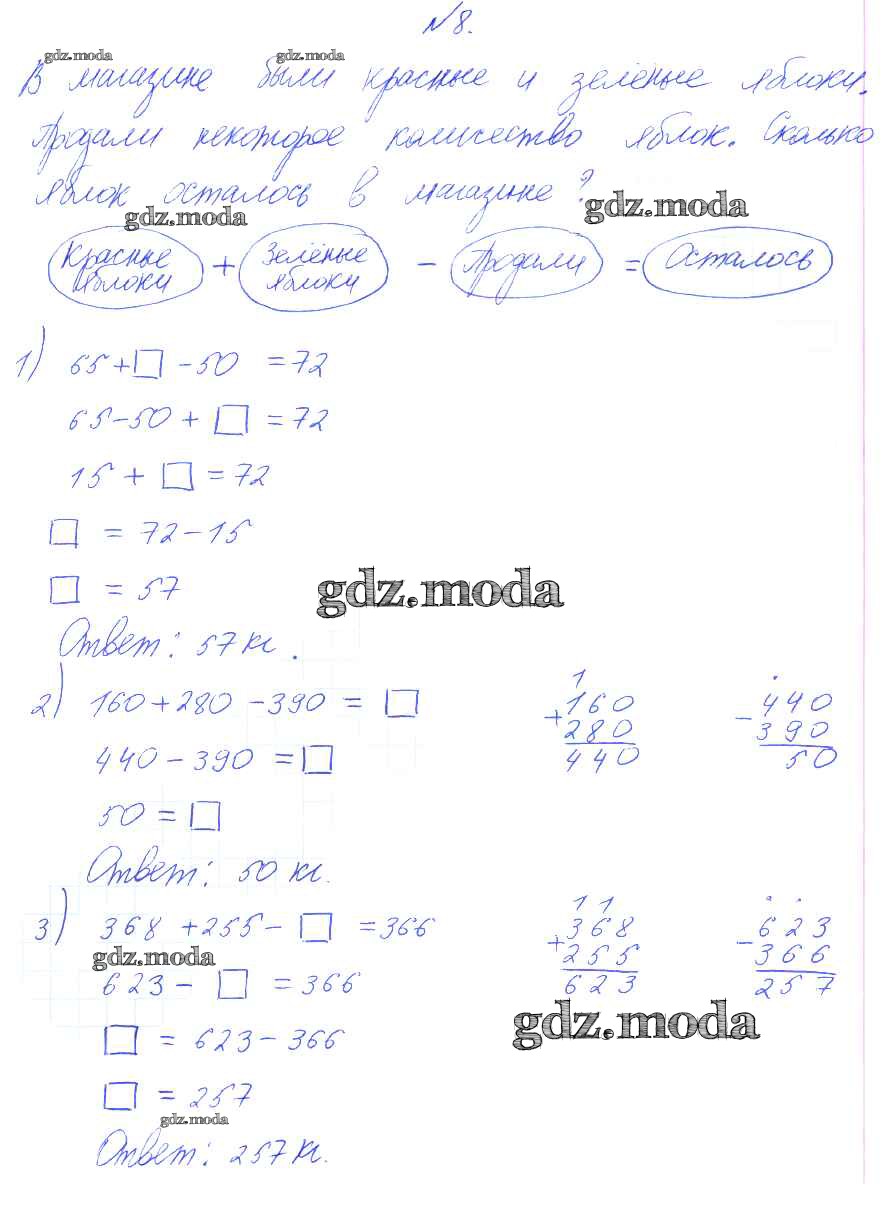 №8.
gdz.moda gdz.moda
В магазине были красные и зелёные яблоки.
Продали некоторое количество яблок. Сколько
яблок осталось в магазине?
gdz.moda gdz.moda
Красные яблоки + Зелёные яблоки - Продали = Осталось
1) 65 + □ - 50 = 72
65 - 50 + □ = 72
15 + □ = 72
□ = 72 - 15
□ = 57
gdz.moda
Ответ: 57 кг.
2) 160 + 280 - 390 = □
440 - 390 = □
50 = □
Ответ: 50 кг.
1
+160
280
440
.
-440
390
50
3) 368 + 255 - □ = 366
gdz.moda
623 - □ = 366
□ = 623 - 366
□ = 257
gdz.moda
Ответ: 257 кг.
1 1
+368
255
623
. .
-623
366
257
gdz.moda